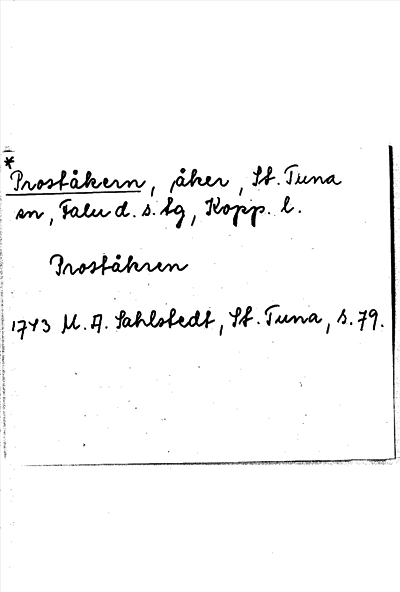 *
Proståkern, åker, St. Tuna
sn, Falu d. s. tg, Kopp. l.
Proståkren
1743 M. A. Sahlstedt, St. Tuna, s. 79.